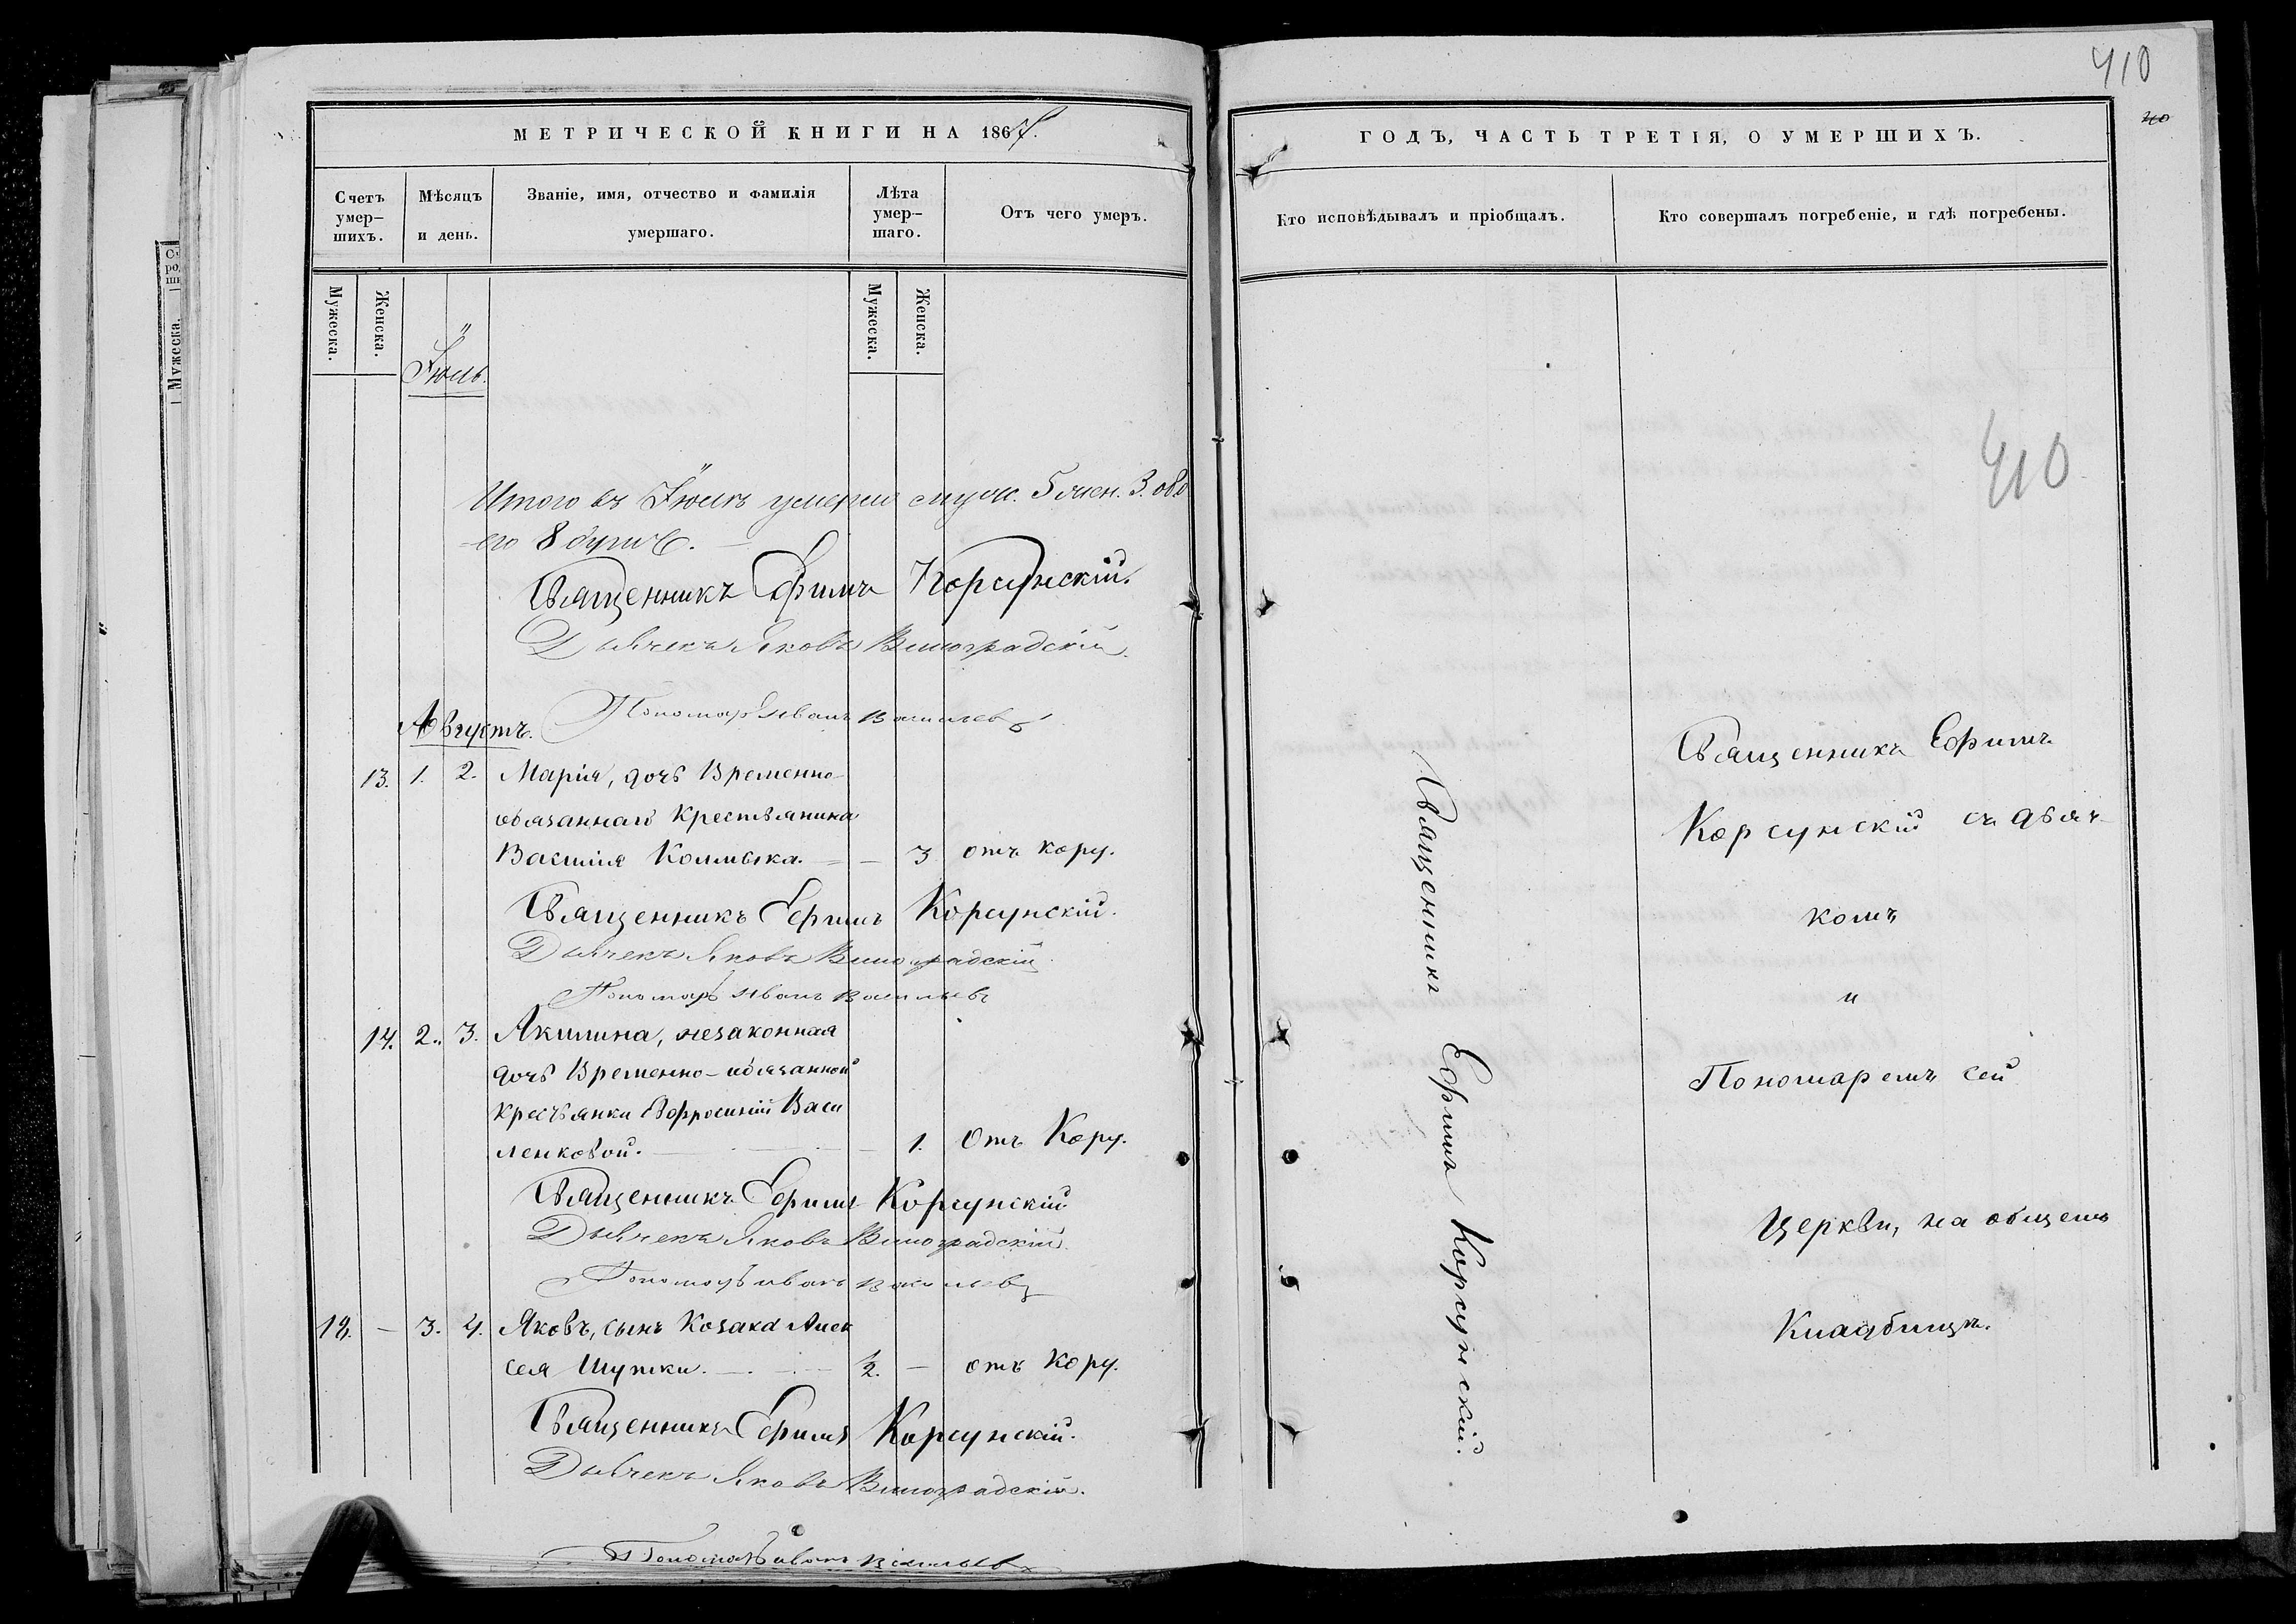 МЕТРИЧЕСКОЙ КНИГИ НА 1867.
Счетъ умер-
шихъ.
Мѣсяцъ
и день.
Званіе, имя, отчество и фамилія
умершаго.
Лѣта
умер-
шаго.
Отъ чего умеръ.
Мужеска.
Женска.
Мужеска.
Женска.
Іюль.
Итого въ Іюлѣ умерло муж. 5 жен. 3. обо
его 8 душъ.
Священникъ Ефимъ Корсунскій.
Дьячекъ Яковъ Виноградскій.
Пономарь Иванъ Васильевъ
Августъ.
13. 1. 2. Марія, дочь Временно-
обязаннаго Крестьянина
Василія Колмыка. — — 3 отъ кору.
Священникъ Ефимъ Корсунскій.
Дьячекъ Яковъ Виноградскій.
Пономарь Иванъ Васильевъ
14. 2. 3. Акилина, незаконная
дочь Временно-обязанной
кресьянки Евфросиніи Васи
ленковой. — 1. Отъ Кору.
Священникъ Ефимъ Корсунскій
Дьячекъ Яковъ Виноградскій.
Пономарь Иванъ Васильевъ
18. — 3. 4. Яковъ, сынъ Козака Алек
сея Шутки. — ½. — отъ кору.
Священникъ Ефимъ Корсунскій.
Дьячекъ Яковъ Виноградскій.
Пономарь Иванъ Васильевъ
410
40
ГОДЪ, ЧАСТЬ ТРЕТІЯ, О УМЕРШИХЪ.
Кто исповѣдывалъ и пріобщалъ.
Кто совершалъ погребеніе, и гдѣ погребены.
410
Священникъ Ефимъ Корсунскій.
Священникъ Ефимъ
Корсунскій съ дьяч-
комъ
и
Пономаремъ сей
Церкви, на общемъ
Кладбищѣ.
Мужеска.